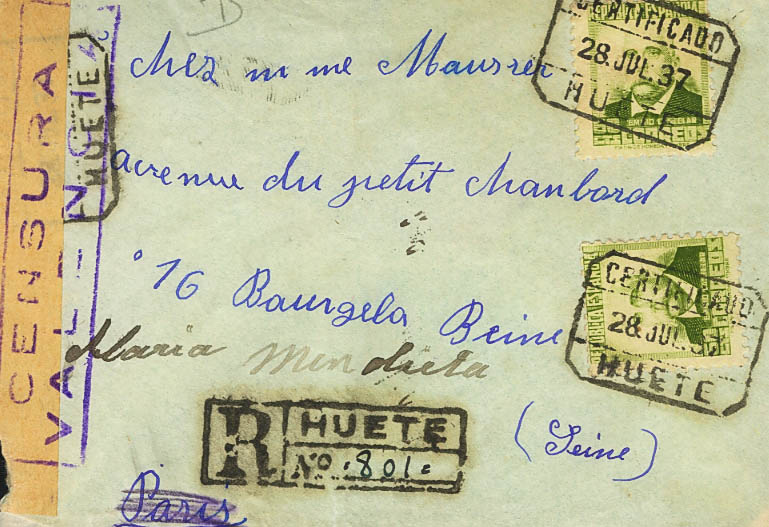 CERTIFICADO
28 JUL. 37
HUETE
EMILIO CASTELAR
CENSURA
VALENCIA
HUETE
chez m me Mausser
avenue du petit chanbord
16 Baurgela Beine
Maria
CERTIFICADO
28 JUL. 37
HUETE
R HUETE
No. 801
(Seine)
Paris